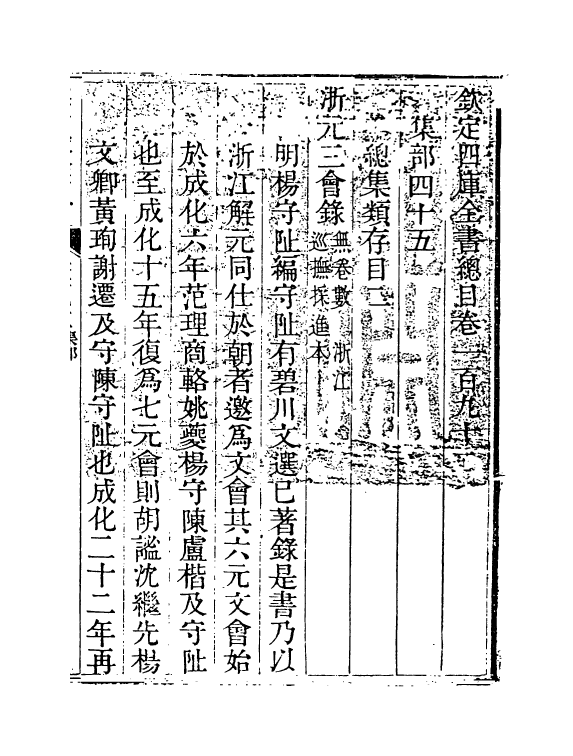 欽定四庫全書總目卷一百九十二
集部四十五
總集類存目二
浙元三會錄無卷數　浙江
巡撫採進本
明楊守阯編守阯有碧川文選已著錄是書乃以
浙江解元同仕於朝者邀爲文會其六元文會始
於成化六年范理商輅姚夔楊守陳盧楷及守阯
也至成化十五年復爲七元會則胡謐沈繼先楊
文卿黃珣謝遷及守陳守阯也成化二十二年再